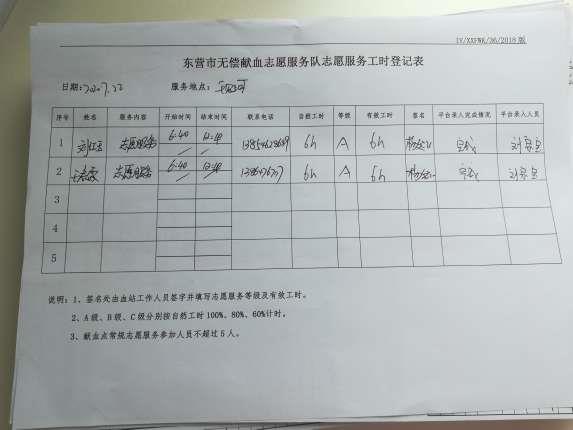 IV/XXFWK/36/2018版
东营市无偿献血志愿服务队志愿服务工时登记表
日期: 2020.7.22 服务地点:
序号 姓名 服务内容 开始时间 结束时间 联系电话 自然工时 等级 有效工时 签名 平台录入完成情况 平台录入人员
1 志愿服务 6:40 12:40 6h A 6h 完成
2 志愿服务 6:40 12:40 6h A 6h 完成
3
4
5
说明:1、签名处由血站工作人员签字并填写志愿服务等级及有效工时。
2、A级、B级、C级分别按自然工时100%、80%、60%计时。
3、献血点常规志愿服务参加人员不超过5人。